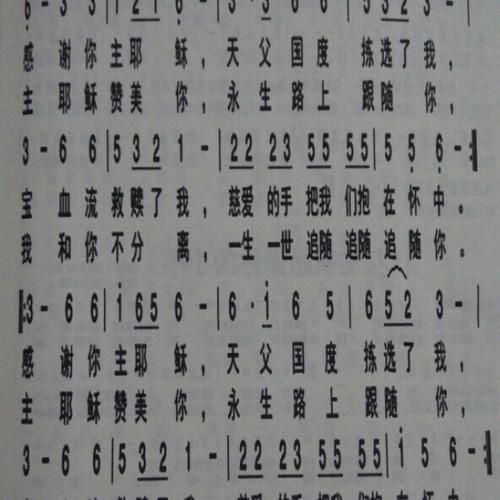 感谢你主耶稣，天父国度拣选了我，
主耶稣赞美你，永生路上跟随你，
3 - 6 6 | 5 3 2 1 - | 2 2 2 3 5 5 5 5 | 5 5 6 - :||
宝血流救赎了我，慈爱的手把我们抱在怀中。
我和你不分离，一生一世追随追随追随你。
||: 3 - 6 6 | i 6 5 6 - | 6 · i 6 5 | 6 5 2 3 - |
感谢你主耶稣，天父国度拣选了我，
主耶稣赞美你，永生路上跟随你，
3 - 6 6 | 5 3 2 1 - | 2 2 2 3 5 5 5 5 | 5 5 6 - :||